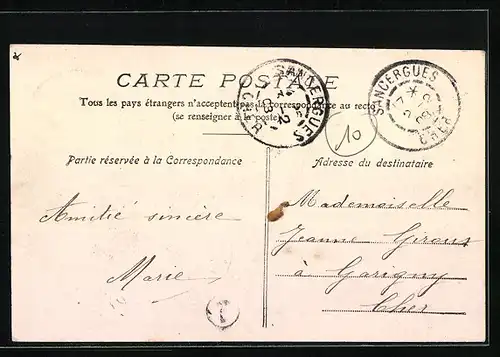 CARTE POSTALE
Tous les pays étrangers n'acceptent pas la correspondance au recto
(se renseigner à la poste)
SANCERGUES
CHER
SANCERGUES
CHER
10
Partie réservée à la Correspondance
Adresse du destinataire
Amitié sincère
Marie
Mademoiselle
Jeanne Giroux
à Garigny
Cher